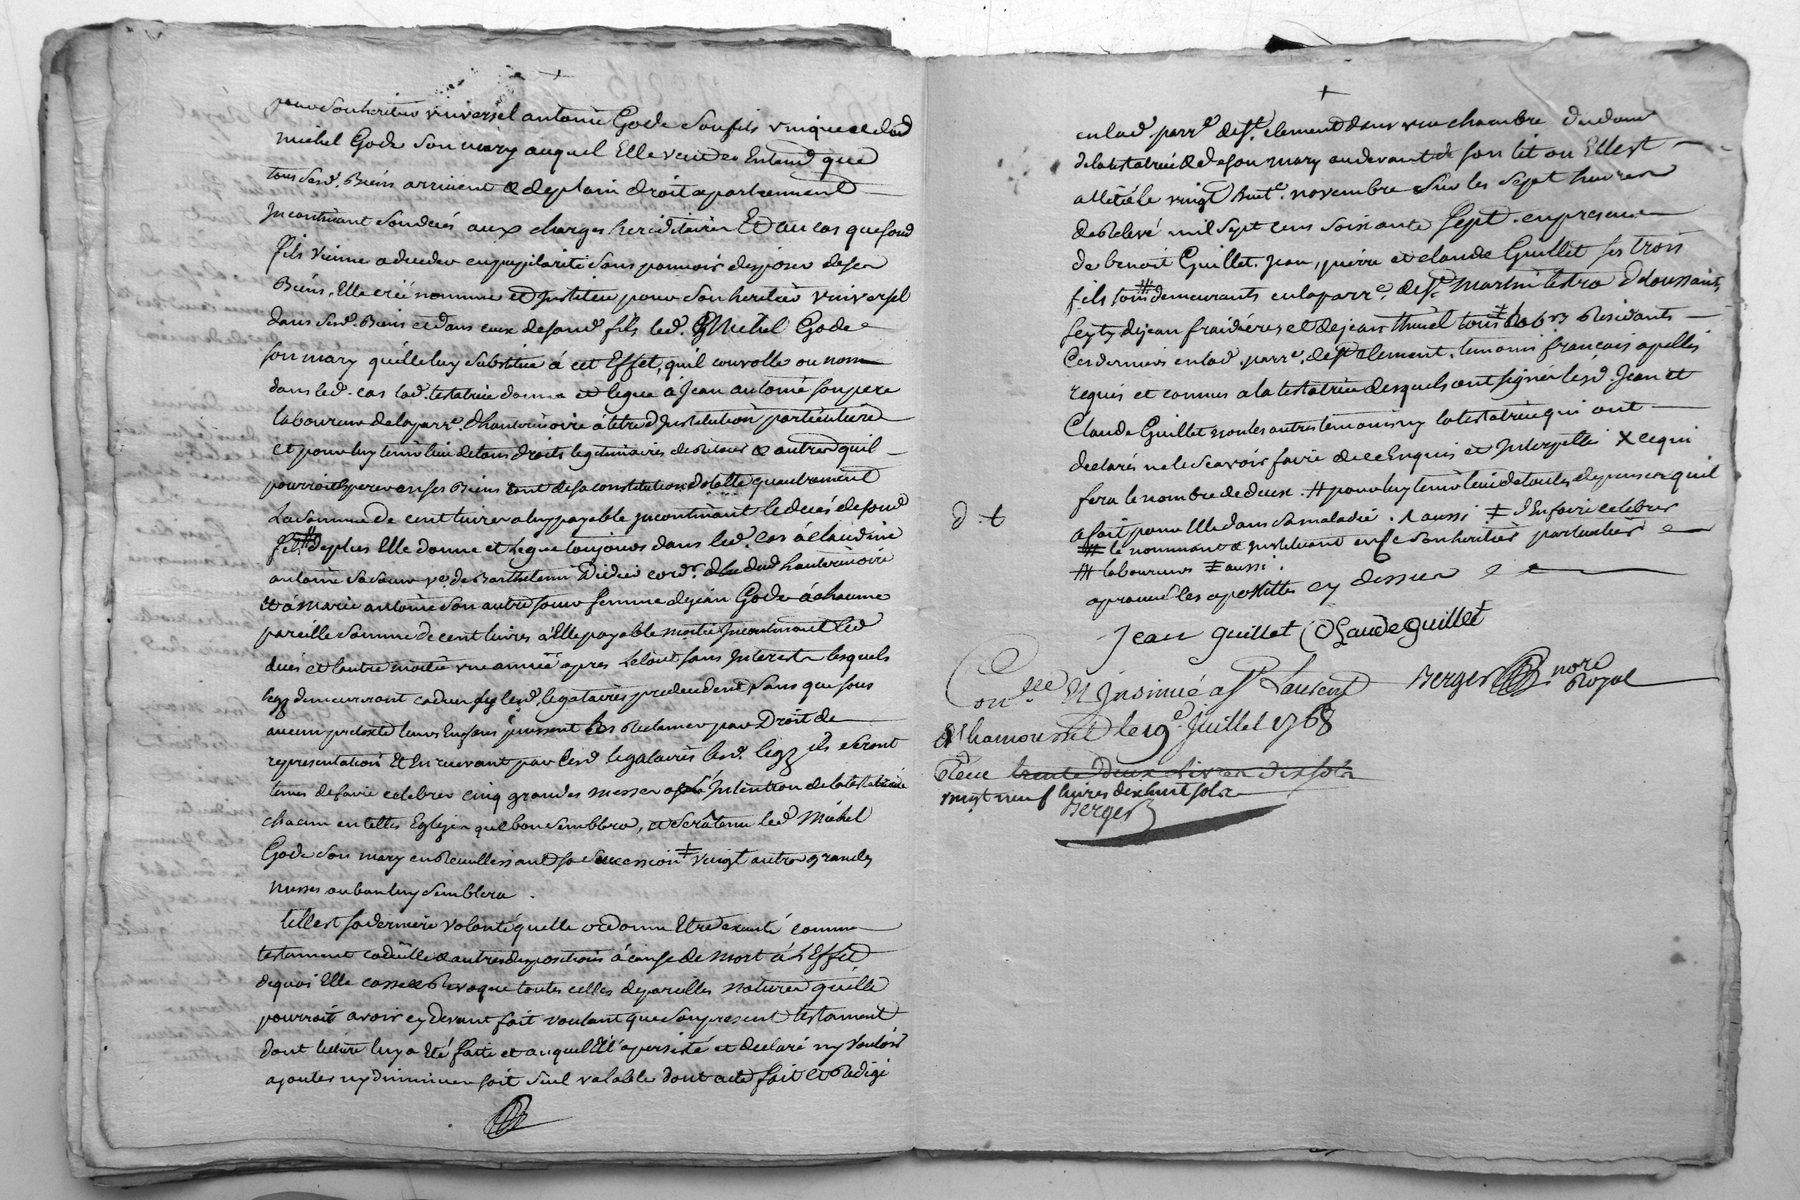 pour son heritier universel antoine Gode son fils unique et dud
michel Gode son mary auquel Elle veut et Entend que
tous sesd. Biens arrivent & de plain droit apartiennent
Incontinant son decés aux charges hereditaires Et au cas que sond
fils vienne a deceder en pupilarité sans pouvoir disposer de ses
Biens, Elle crée nomme et Institue pour son heritier universel
dans sesd. Biens et dans ceux de sond fils led. Michel Gode
son mary qu'elle luy substitue à cet Effet, qu'il convolle ou non
dans led. cas lad. testatrice donne et legue a Jean antoine son pere
laboureur de la parr.e d'hauterivoire à titre d'Institution particuliere
et pour luy tenir lieu de tous droits legitimaires de retour & autres qu'il
pourroit esperer en ses Biens tant de sa constitution dotalle qu'autrement
La somme de cent livres a luy payable Incontinant le decés de sond
fils # de plus Elle donne et Legue toujours dans led. cas à claudine
antoine sa sœur v.e de Barthelemi Didier cord.r dud hauterivoire
et à marie antoine son autre sœur femme de jean Gode à chacune
pareille somme de cent livres à Elle payable moitié Incontinant led
decés et l'autre moitié une année apres Le tout sans Interest lesquels
legs demeureront caducs si lesd. legataires predecedent sans que sous
aucun pretexte leurs Enfans puissent les reclamer par Droit de
representation Et En recevant par lesd legataires lesd. legs ils seront
tenus de faire celebrer cinq grandes messes a L'Intention de la testatrice
chacun en telles Eglizes que bon semblera, et sera tenu led Michel
Gode son mary en recueillissant sa succession ‡ vingt autres grandes
messes ou bon luy semblera.
telle est sa derniere volonté qu'elle ordonne Etre executé comme
testament codicille & autres dispositions à cause de mort à L'Effet
de quoi Elle casse & revoque toutes celles de pareilles natures qu'elle
pourroit avoir cy devant fait voulant que son present testament
dont lecture luy a Eté faite et auquel Ell' a persisté et declaré ny vouloir
ajouter ny diminuer soit seul valable dont acte fait et redigé
en lad. parr.e de St. clement dans une chambre du dom.
de la testatrice & de son mary au devant de son lit ou Elle est
allitée le vingt huit.e novembre sur les sept heures
de relevé mil sept cens soixante sept. en presence
de benoit Guillet. Jean, pierre et claude Guillet ses trois
fils tous # demeurants en la parr.e de St martin lestra & toussaints
de jean et de jean tous residants
Ces derniers en lad. parr.e de St clement. temoins francois apellés
requis et connus a la testatrice desquels ont signés lesd. Jean et
Claude Guillet non les autres temoins ny la testatrice qui ont
declarés ne le scavoir faire de ce Enquis et Interpellé X ce qui
fera le nombre de deux. # pour luy tenir lieu de toutes depenses qu'il
d. t.
a fait pour Elle dans sa maladie. ʌ aussi ‡ d'En faire celebrer
# le nommant & Instituant en ce son heritier particulier
# laboureurs ‡ aussi.
aprouvé les apostilles cy dessus
Jean guillet Claude guillet
Berger no.re Royal
Con.lé Et Insinué a St Laurent
de chamousset le 19.e Juillet 1768
Reçu trente deux livres dix sols
vingt neuf livres dixhuit sols
Berger